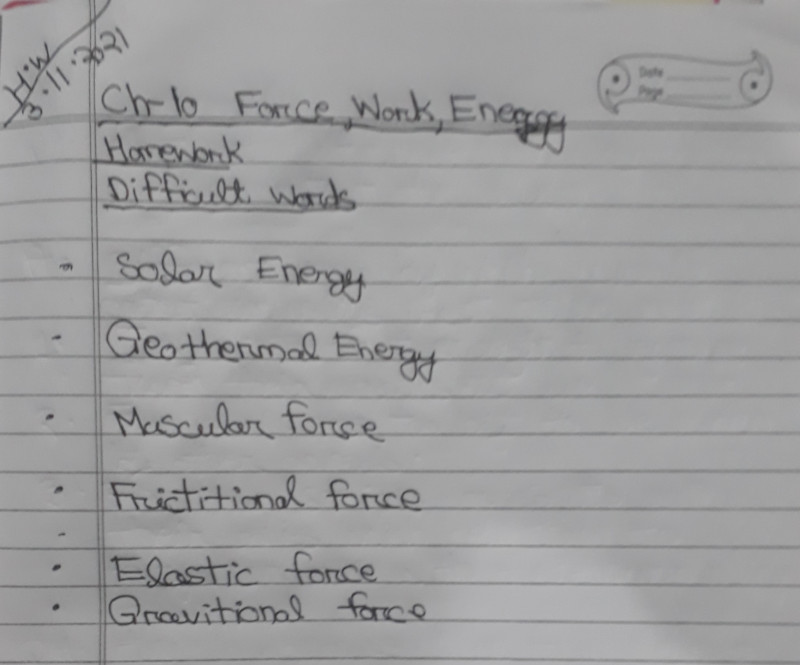 H.W
3.11.2021
Date
Page
Ch-10 Force, Work, Energy
Homework
Difficult words
Solar Energy
Geothermal Energy
Muscular force
Frictitional force
Elastic force
Gravitional force